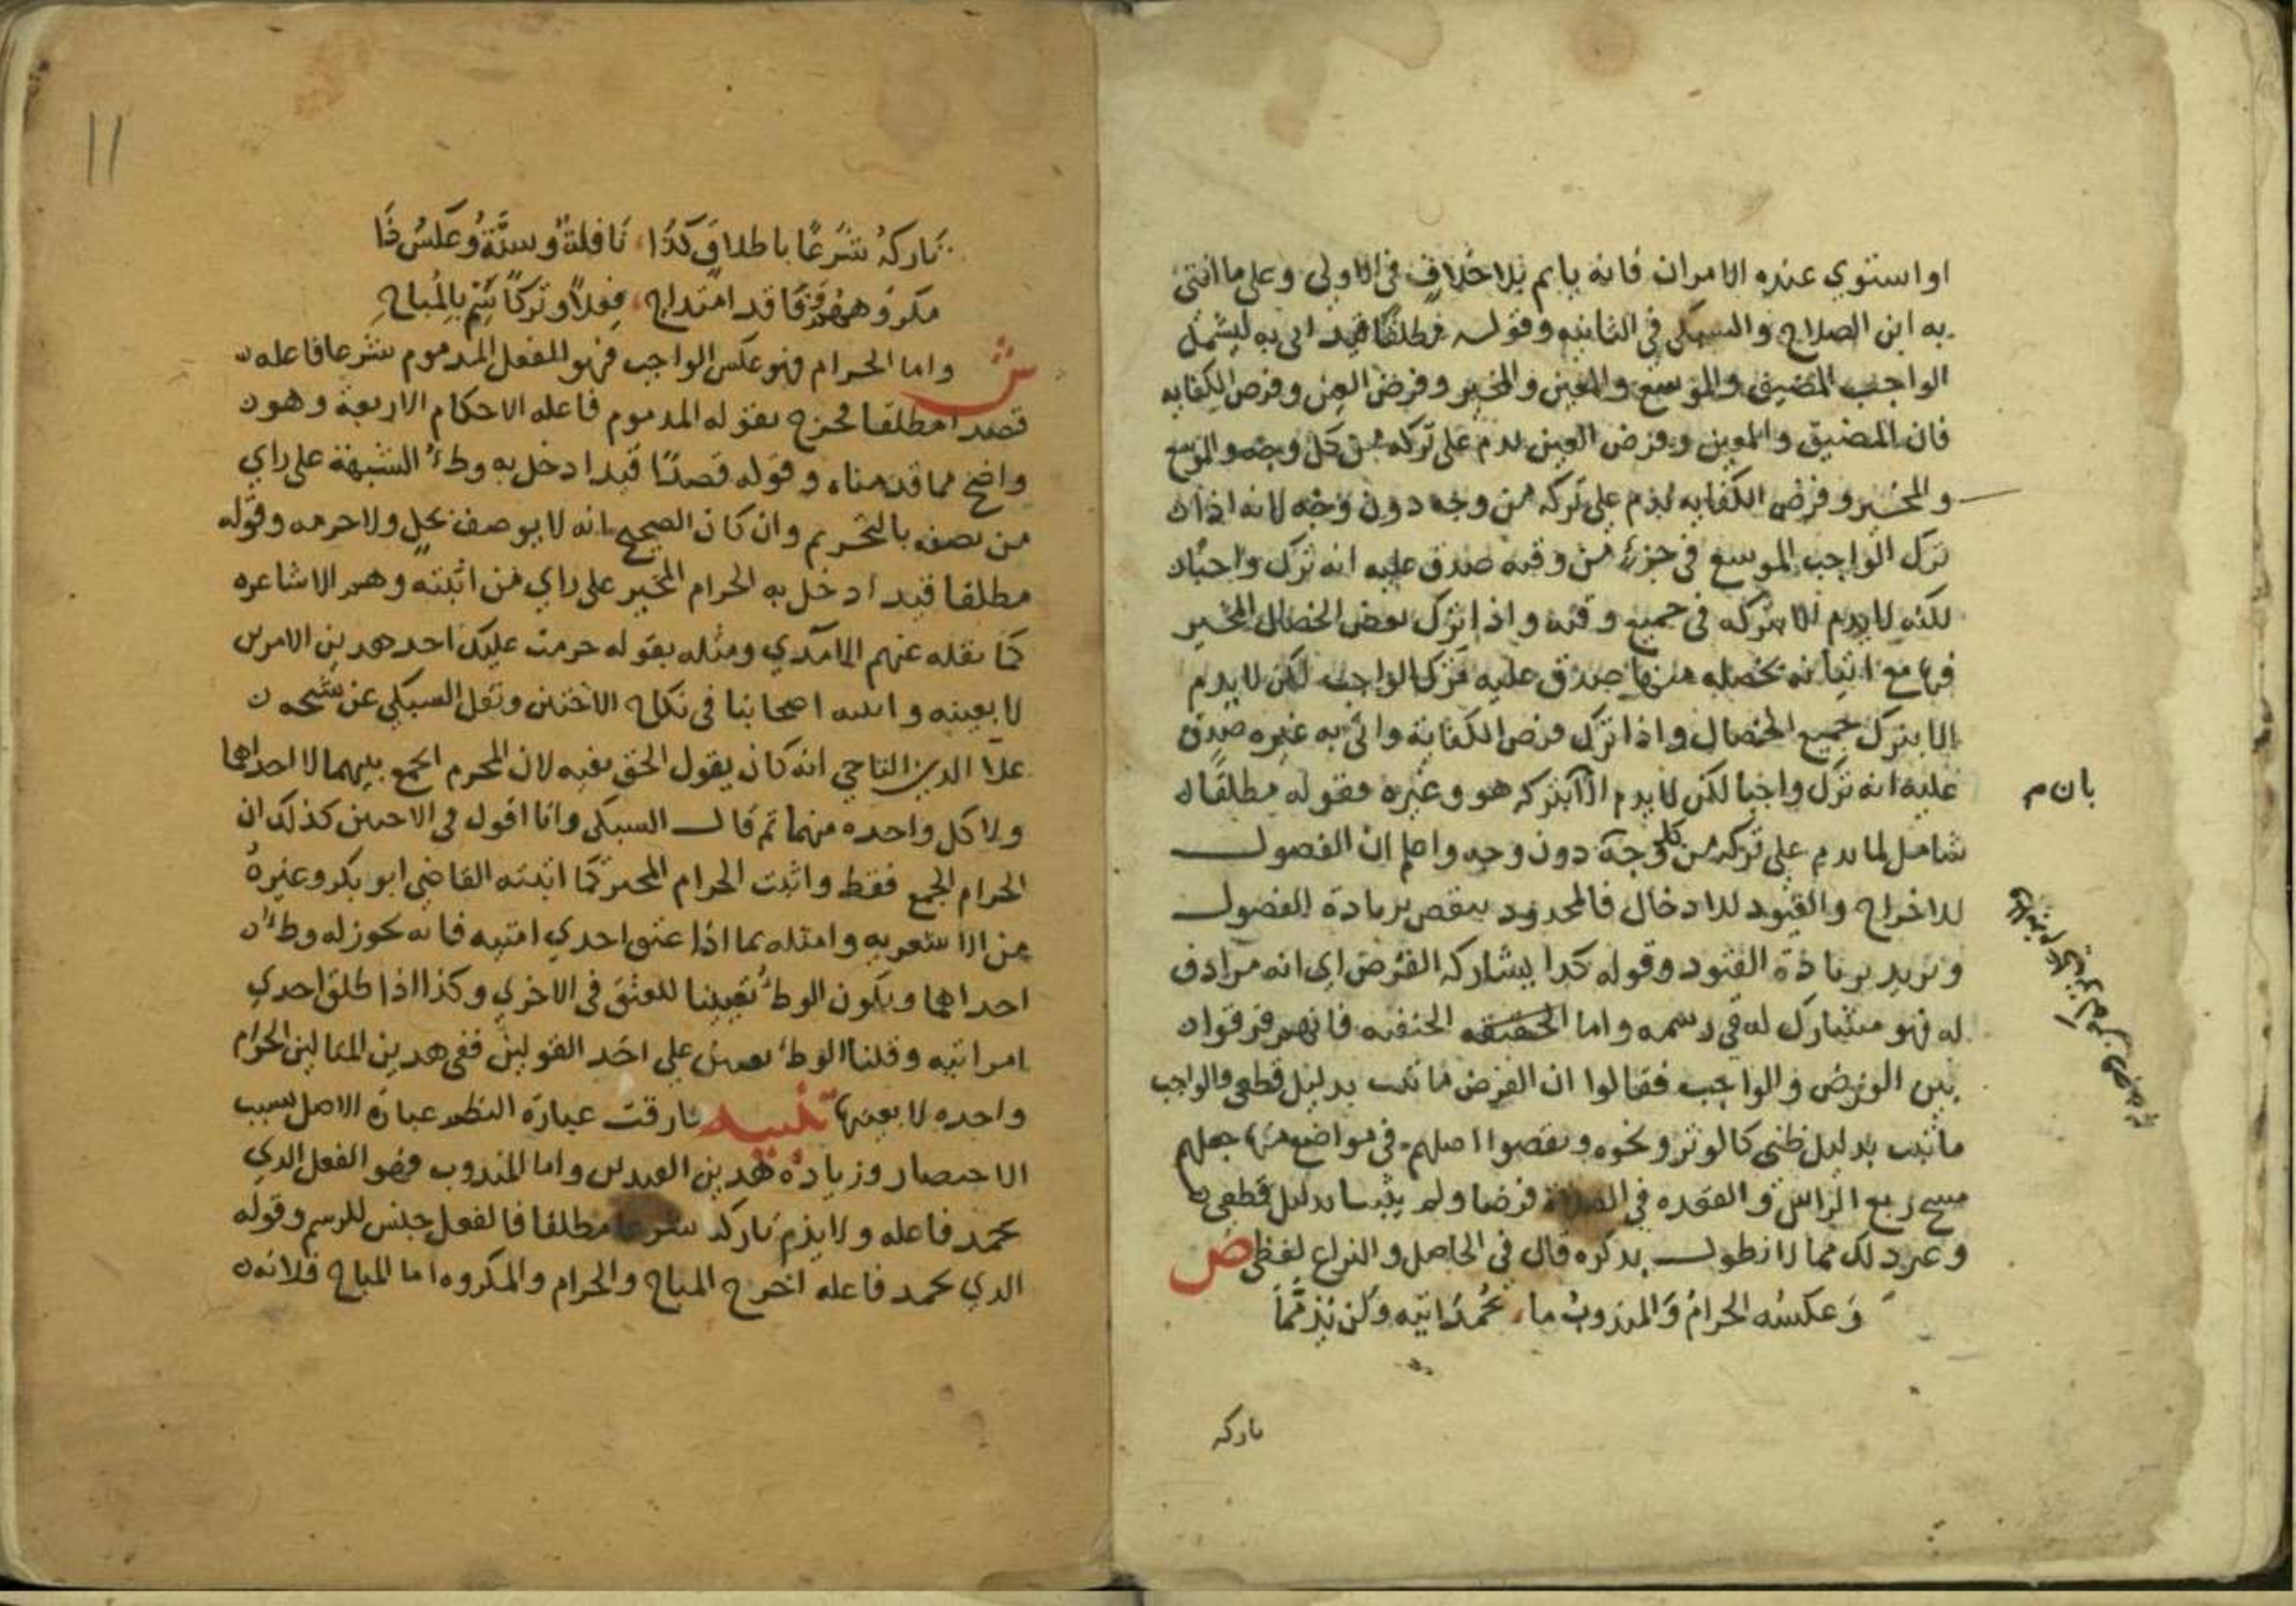 او استوي عنده الامران فانه ياثم بلا خلاف في الاولي وعلي ما افتي
به ابن الصلاح والسبكي في الثانيه وقوله مطلقا قيد اتي به ليشمل
الواجب المضيق والموسع والمعين والمخير وفرض العين وفرض الكفايه
فان المضيق والمعين وفرض العين يدم علي تركه من كل وجه والموسع
والمخير وفرض الكفايه يذم علي تركه من وجه دون وجه لانه اذا
ترك الواجب الموسع في جزء من وقته صدق عليه انه ترك واجبا
لكنه لا يدم الا بتركه في جميع وقته واذا ترك بعض الخصال المخير
فيها مع اتيانه بخصله منها صدق عليه ترك الواجب لكن لا يدم
الا بترك جميع الخصال واذا ترك فرض الكفاية واتي به غيره صدق
عليه انه ترك واجبا لكن لا يدم الا بتركه هو وغيره فقوله مطلقا
شامل لما يدم علي تركه من كل وجه دون وجه واعلم ان الفصول
للاخراج والقيود للادخال فالمحدود ينقص بزيادة الفصول
ويزيد بزيادة القيود وقوله كدا يشاركه الفرض اي انه مرادف
له فهو مشارك له في رسمه واما الحقيقه الحنفيه فانهم فرقوا
بين الفرض والواجب فقالوا ان الفرض ما ثبت بدليل قطعي والواجب
ما ثبت بدليل ظني كالوتر ونحوه ونقضوا اصلهم في مواضع منها جعلهم
مسح ربع الراس والقعده في الصلاة فرضا ولم يثبتا بدليل قطعي
وغير دلك مما لا نطول بدكره قال في الحاصل والنزاع لفظي ص
وَعكسُه الحرامُ وَالمندوبُ ما، يُحْمَدُ اتيه ولن يُذمَّمَا
تاركه
بان م
11
تَاركهُ شَرعًا باطلاقٍ كَذَا، نَافلةٌ وسنَّةٌ وعَكسُ ذَا
مكرُوهُهُم وَمَا قد امتداح، فِعلاً وتَركاً سَمِّ بِالمُباحِ
ش واما الحرام فهو عكس الواجب فهو الفعل المدموم شرعا فاعله
قصدا مطلقا فخرج بقوله المدموم فاعله الاحكام الاربعة وهو
واضح مما قدمناه وقوله قصدًا قيد ادخل به وطء الشبهة علي راي
من يصفه بالتحريم وان كان الصحيح انه لا يوصف بحل ولا حرمه وقوله
مطلقا قيد ادخل به الحرام المخير علي راي من اثبته وهم الاشاعره
كما نقله عنهم الامدي ومثله بقوله حرمت عليك احد هدين الامرين
لا بعينه واثبته اصحابنا في نكاح الاختين ونقل السبكي عن شيخه
علا الدين الباجي انه كان يقول الحق نفيه لان المحرم الجمع بينهما لا احداهما
ولا كل واحده منهما ثم قال السبكي وانا اقول في الاختين كذلك ان
الحرام الجمع فقط واثبت الحرام المخير كما اثبته القاضي ابو بكر وغيره
من الاشعريه وامثله بما اذا عتق احدي امتيه فانه يجوز له وطء
احداهما ويكون الوطء تعيينا للعتق في الاخري وكذا اذا طلق احدي
امراتيه وقلنا الوطء تعيين علي احد القولين ففي هدين المثالين الحرام
واحده لا بعينها تنبيه فارقت عبارة النظم عبارة الاصل بسبب
الاختصار وزيادة هدين القيدين واما المندوب فهو الفعل الدي
يحمد فاعله ولا يذم تاركه شرعا مطلقا فالفعل جنس للرسم وقوله
الدي يحمد فاعله اخرج المباح والحرام والمكروه اما المباح فلانه